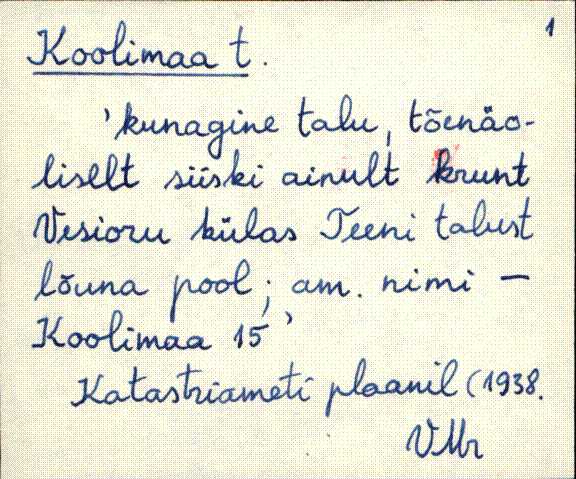 1
Koolimaa t.
'kunagine talu, tõenäo-
liselt siiski ainult krunt
Vesioru külas Teeni talust
lõuna pool; am. nimi –
Koolimaa 15'
Katastriameti plaanil (1938.
VMr